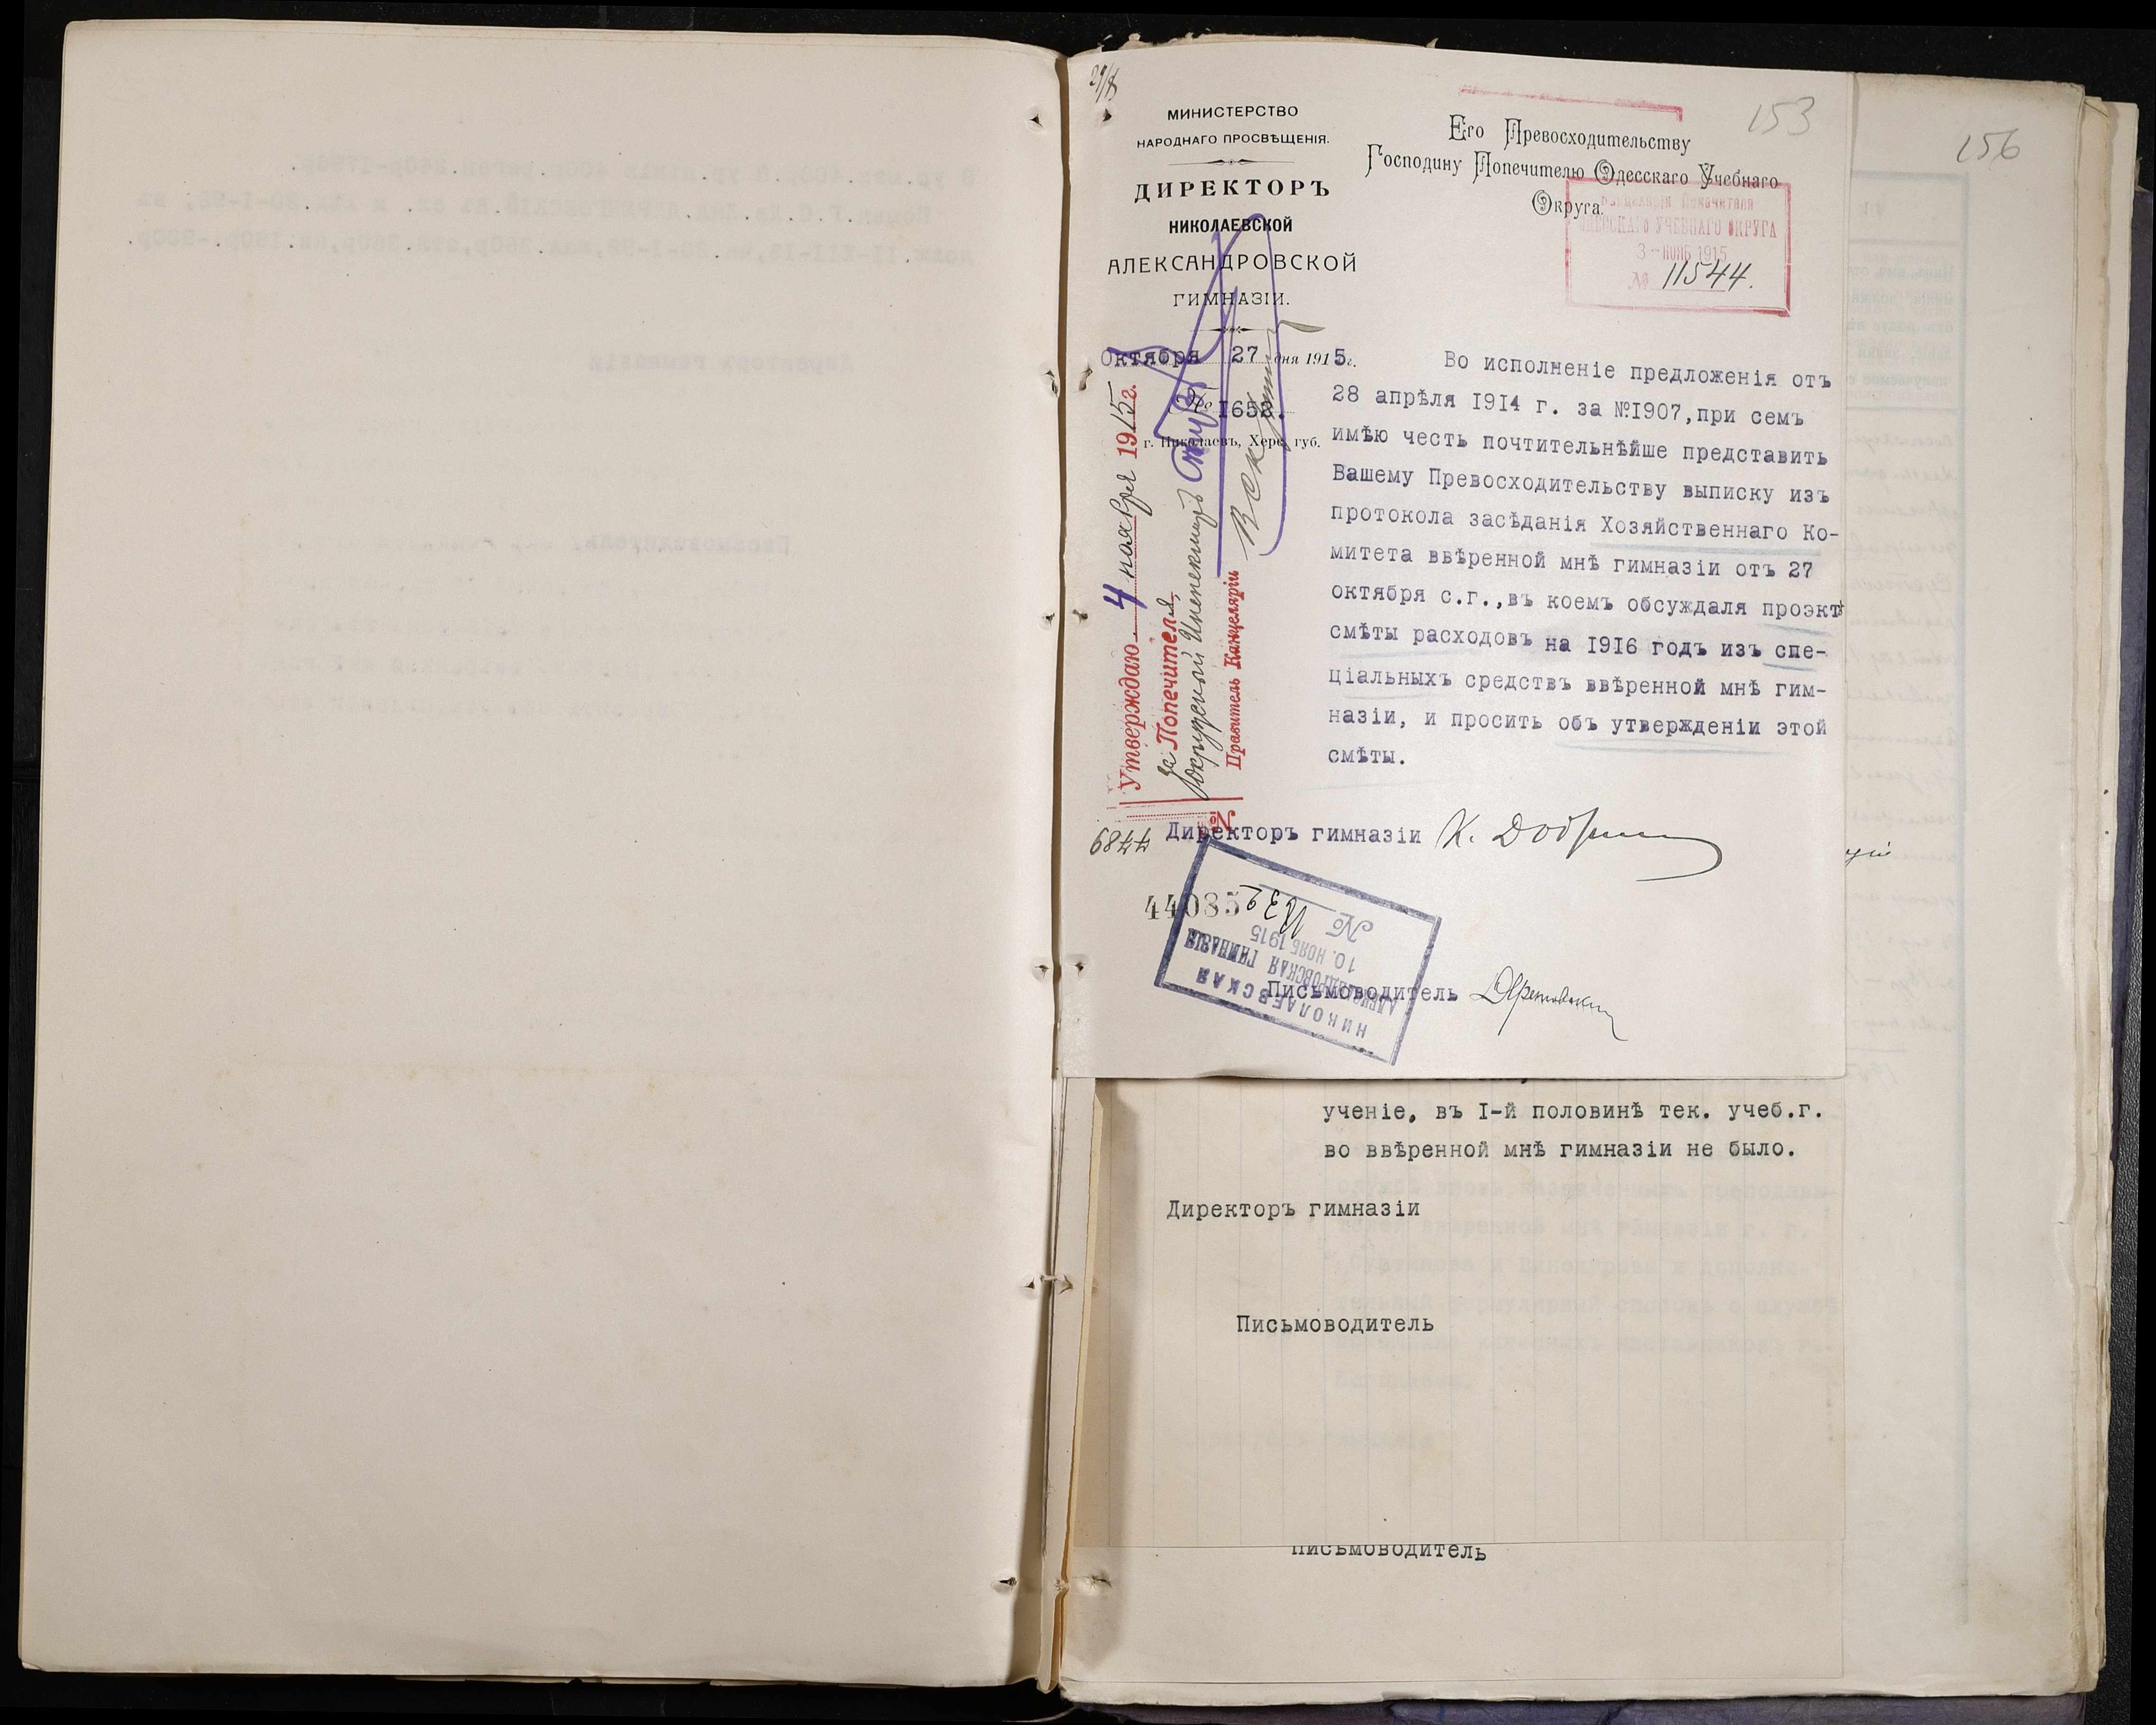 29/X
МИНИСТЕРСТВО
НАРОДНАГО ПРОСВѢЩЕНІЯ.
ДИРЕКТОРЪ
НИКОЛАЕВСКОЙ
АЛЕКСАНДРОВСКОЙ
ГИМНАЗІИ.
Октября 27 дня 1915г.
№ 1652.
г. Николаевъ, Херс. губ.
153
Его Превосходительству
Господину Попечителю Одесскаго Учебнаго
Округа.
Канцелярія Попечителя
ОДЕССКАГО УЧЕБНАГО ОКРУГА
3 - НОЯБ 1915
№ 11544.
Во исполненіе предложенія отъ
28 апрѣля 1914 г. за №1907,при семъ
имѣю честь почтительнѣйше представить
Вашему Превосходительству выписку изъ
протокола засѣданія Хозяйственнаго Ко-
митета ввѣренной мнѣ гимназіи отъ 27
октября с.г.,въ коемъ обсуждаля проэктъ
смѣты расходовъ на 1916 годъ изъ спе-
ціальныхъ средствъ ввѣренной мнѣ гим-
назіи, и просить объ утвержденіи этой
смѣты.
Утверждаю 4 ноября 1915г.
за Попечителя,
Окружной Инспекторъ
Правитель Канцеляріи
№
44085
Директоръ гимназіи
НИКОЛАЕВСКАЯ
АЛЕКСАНДРОВСКАЯ ГИМНАЗІЯ
10. НОЯБ 1915
№ 1832
Письмоводитель
156
ученіе, въ I-й половинѣ тек. учеб.г.
во ввѣренной мнѣ гимназіи не было.
Директоръ гимназіи
Письмоводитель
Письмоводитель